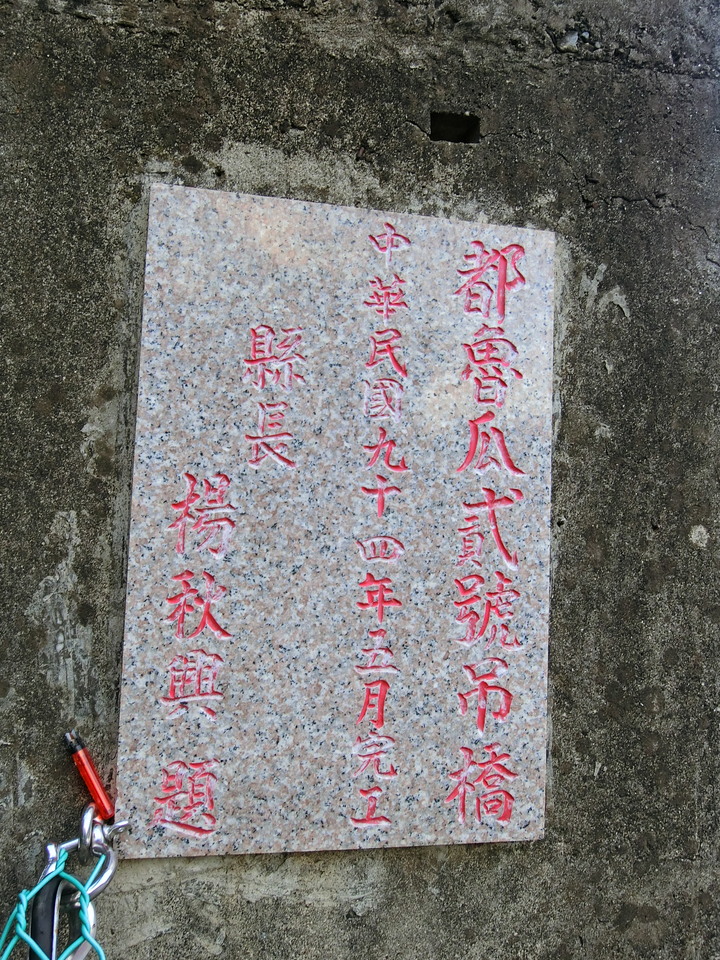 都魯瓜貳號吊橋
中華民國九十四年五月完工
縣長
楊秋興 題